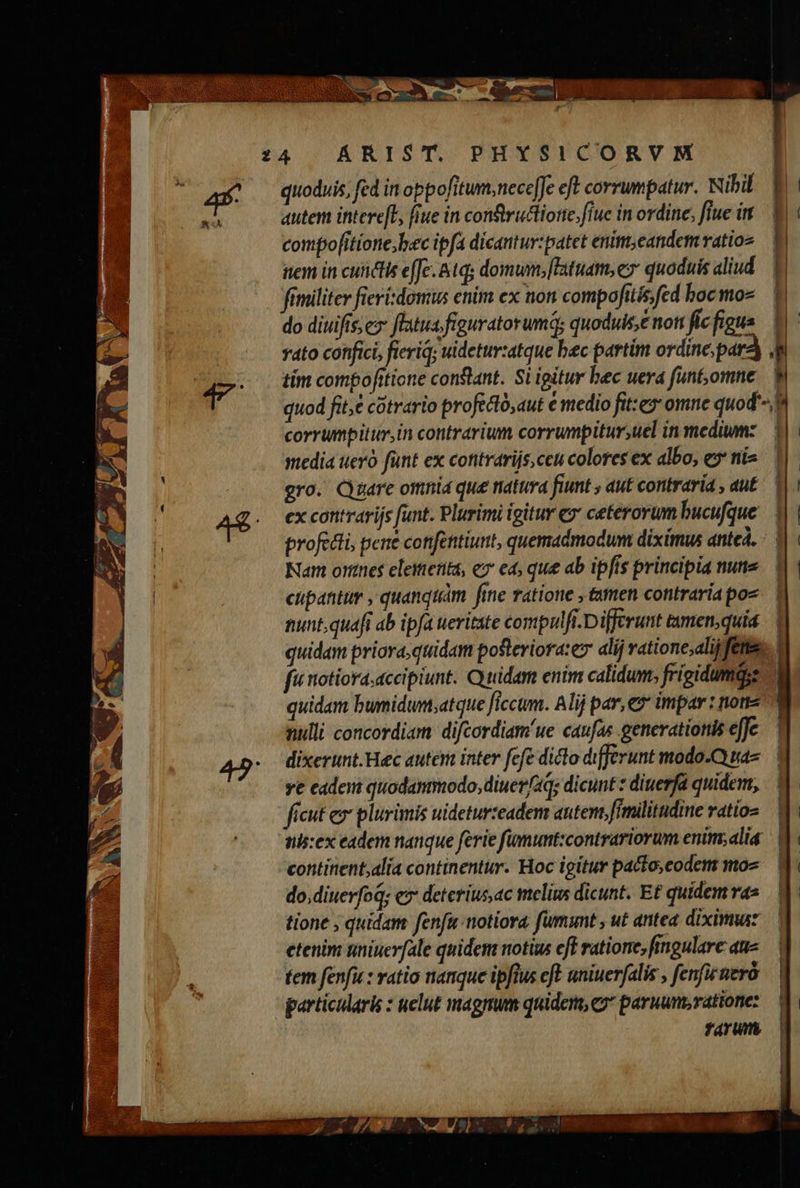 24 ARIST. PHYSICORVM
46. quoduis, ſed in oppoſitum,neceſſe eſt corrumpatur. Nihil
autem intereſt, ſiue in conſtructione,ſiue in ordine, ſiue in
compoſitione,hæc ipſa dicantur:patet enim,eandem ratio=
nem in cunctis eſſe. Atq; domum,ſtatuam,& quoduis aliud
ſimiliter fieri:domus enim ex non compoſitis,ſed hoc mo=
do diuiſis,& ſtatua,figuratorumq́; quoduis,è non ſic figu=
rato confici, fieriq́; uidetur:atque hæc partim ordine,par=
tim compoſitione conſtant. Si igitur hæc uera ſunt,omne
47. quod fit,è cõtrario profectò,aut è medio fit:& omne quod
corrumpitur,in contrarium corrumpitur,uel in medium:
media uerò ſunt ex contrarijs,ceu colores ex albo, & ni=
gro. Quare omnia que natura fiunt , aut contraria , aut
48. ex contrarijs ſunt. Plurimi igitur & ceterorum hucuſque
profecti, penè conſentiunt, quemadmodum diximus anteà.
Nam omnes elementa, & ea, que ab ipſis principia nun=
cupantur , quanquàm ſine ratione , tamen contraria po=
nunt,quaſi ab ipſa ueritate compulſi.Differunt tamen,quia
quidam priora,quidam poſteriora:& alij ratione,alij ſen=
ſu notiora,accipiunt. Quidam enim calidum, frigidumq́;:
quidam humidum,atque ſiccum. Alij par, & impar : non=
nulli concordiam diſcordiam'ue cauſas generationis eſſe
49. dixerunt.Hæc autem inter ſeſe dicto differunt modo.Qua=
re eadem quodammodo,diuerſaq́; dicunt : diuerſa quidem,
ſicut & plurimis uidetur:eadem autem,ſimilitudine ratio=
nis:ex eadem nanque ſerie ſumunt:contrariorum enim,alia
continent,alia continentur. Hoc igitur pacto,eodem mo=
do,diuerſoq́; & deterius,ac melius dicunt. Et quidem ra=
tione , quidam ſenſu notiora ſumunt , ut antea diximus:
etenim uniuerſale quidem notius eſt ratione, ſingulare au=
tem ſenſu : ratio nanque ipſius eſt uniuerſalis , ſenſus uerò
particularis : uelut magnum quidem, & paruum,ratione:
rarum